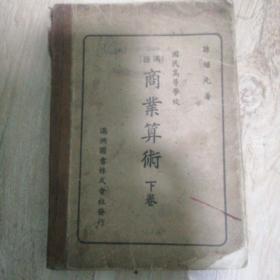 孫繼光 著
國民高等學校
商業算術 下卷
滿洲圖書株式會社發行